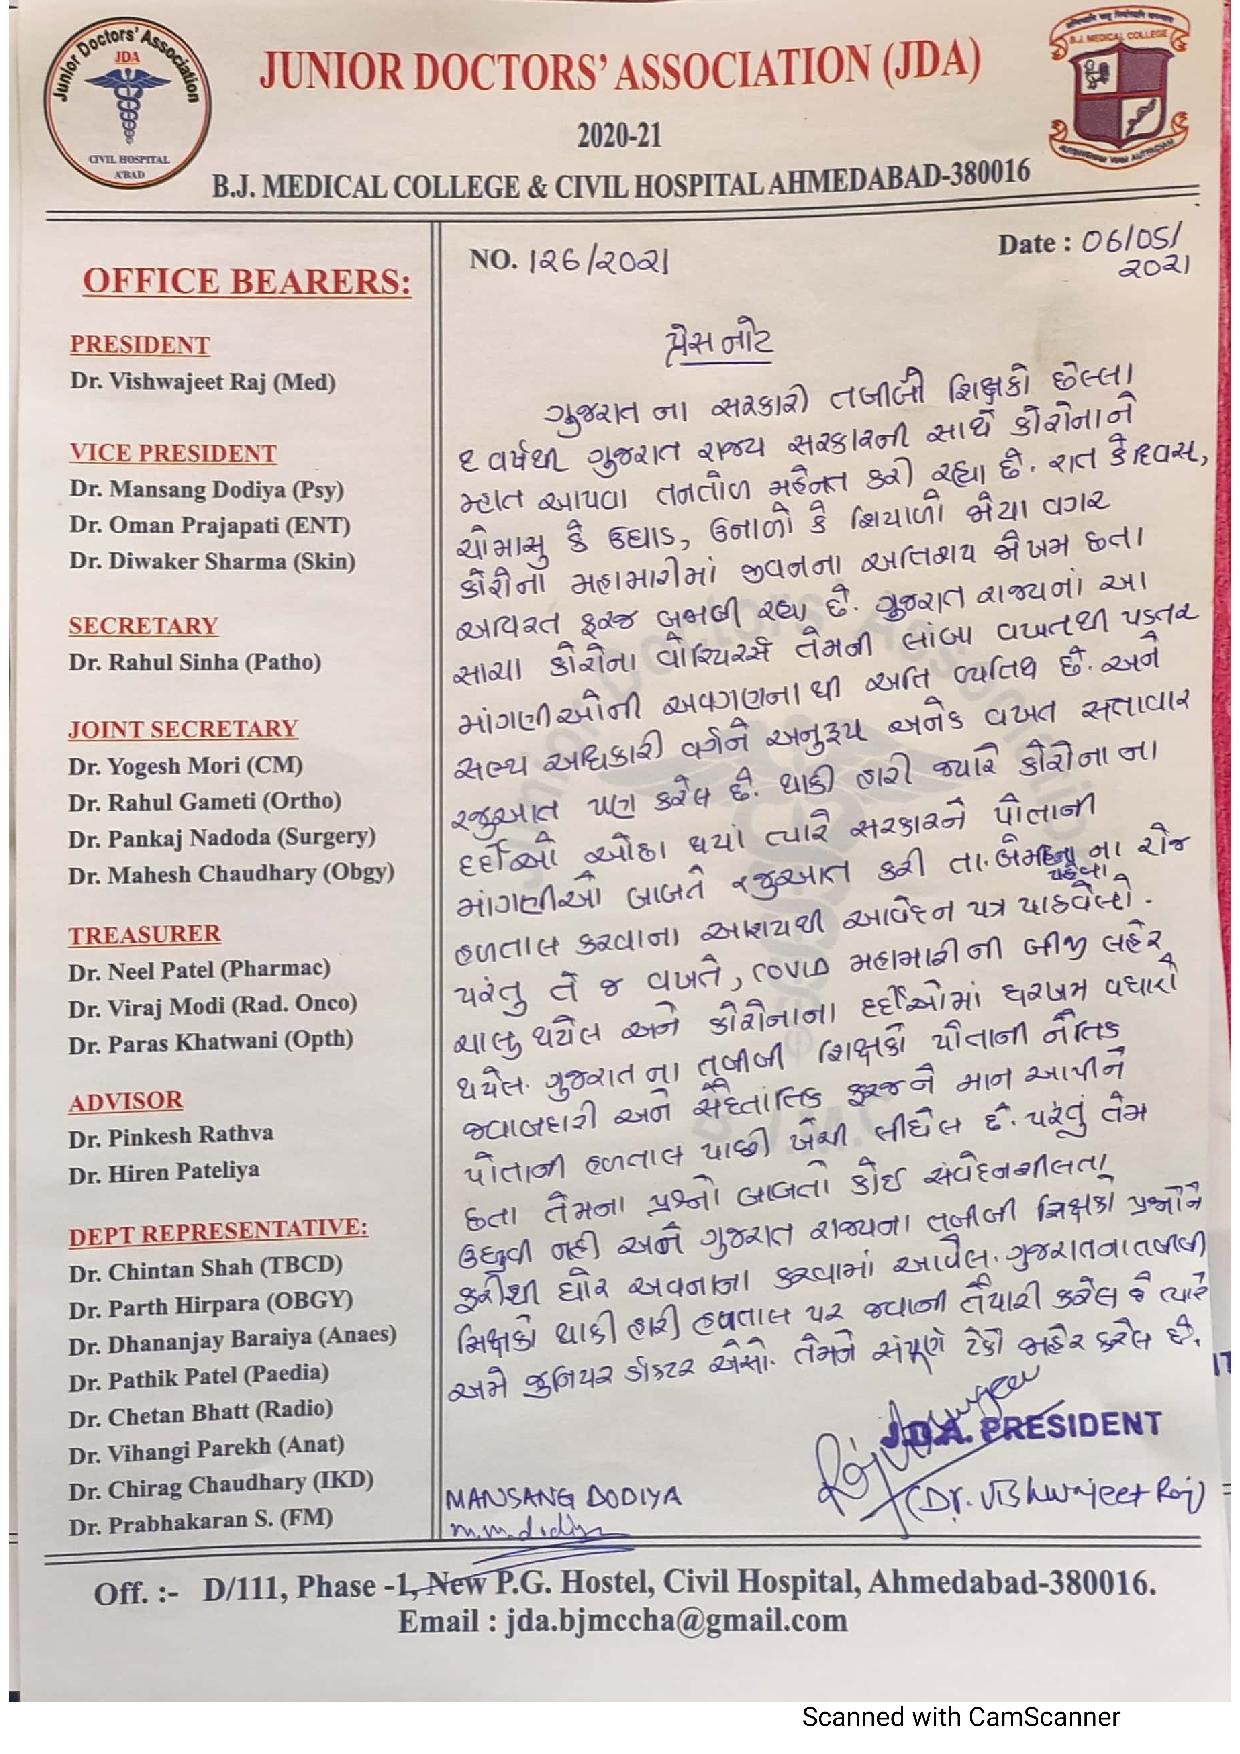 Junior Doctors' Association
JDA
CIVIL HOSPITAL
A'BAD
JUNIOR DOCTORS' ASSOCIATION (JDA)
2020-21
B.J. MEDICAL COLLEGE & CIVIL HOSPITAL AHMEDABAD-380016
B.J. MEDICAL COLLEGE
OFFICE BEARERS:
PRESIDENT
Dr. Vishwajeet Raj (Med)
VICE PRESIDENT
Dr. Mansang Dodiya (Psy)
Dr. Oman Prajapati (ENT)
Dr. Diwaker Sharma (Skin)
SECRETARY
Dr. Rahul Sinha (Patho)
JOINT SECRETARY
Dr. Yogesh Mori (CM)
Dr. Rahul Gameti (Ortho)
Dr. Pankaj Nadoda (Surgery)
Dr. Mahesh Chaudhary (Obgy)
TREASURER
Dr. Neel Patel (Pharmac)
Dr. Viraj Modi (Rad. Onco)
Dr. Paras Khatwani (Opth)
ADVISOR
Dr. Pinkesh Rathva
Dr. Hiren Pateliya
DEPT REPRESENTATIVE:
Dr. Chintan Shah (TBCD)
Dr. Parth Hirpara (OBGY)
Dr. Dhananjay Baraiya (Anaes)
Dr. Pathik Patel (Paedia)
Dr. Chetan Bhatt (Radio)
Dr. Vihangi Parekh (Anat)
Dr. Chirag Chaudhary (IKD)
Dr. Prabhakaran S. (FM)
NO. 126/2021
Date : 06/05/
2021
પ્રેસ નોટ
ગુજરાત ના સરકારી તબીબી શિક્ષકો છેલ્લા
૨ વર્ષથી ગુજરાત રાજ્ય સરકારની સાથે કોરોનાને
મ્હાત આપવા તનતોળ મહેનત કરી રહ્યા છે. રાત કે દિવસ,
ચોમાસુ કે ઉઘાડ, ઉનાળો કે શિયાળો જોયા વગર
કોરોના મહામારીમાં જીવનના અતિશય જોખમ છતા
અવિરત ફરજ બજાવી રહ્યા છે. ગુજરાત રાજ્યનાં આ
સાચા કોરોના વોરિયર્સ તેમની લાંબા વખતથી પડતર
માંગણીઓની અવગણના થી અતિ વ્યતિથ છે. અને
સભ્ય અધિકારી વર્ગને અનુરૂપ અનેક વખત સતાવાર
રજુઆત પણ કરેલ છે. થાકી હારી જ્યારે કોરોના ના
દર્દીઓ ઓછા થયાં ત્યારે સરકારને પોતાની
માંગણીઓ બાબતે રજુઆત કરી તા. બે મહિના ના રોજ
પહેલા
હળતાલ કરવાના આશયથી આવેદન પત્ર પાઠવેલો.
પરંતુ તે જ વખતે, COVID મહામારી ની બીજી લહેર
ચાલુ થયેલ અને કોરોનાના દર્દીઓમાં ધરખમ વધારો
થયેલ. ગુજરાત ના તબીબી શિક્ષકો પોતાની નૈતિક
જવાબદારી અને સૈદ્ધાંતિક ફરજને માન આપીને
પોતાની હળતાલ પાછી ખેંચી લીધેલ છે. પરંતું તેમ
છતા તેમના પ્રશ્નો બાબતો કોઈ સંવેદનશીલતા
ઉદ્ભવી નહી અને ગુજરાત રાજ્યના તબીબી શિક્ષકો પ્રશ્નોને
ફરીથી ઘોર અવનાના કરવામાં આવેલ. ગુજરાતના તબીબી
શિક્ષકો થાકી હારી હળતાલ પર જવાની તૈયારી કરેલ છે ત્યારે
અમે જુનિયર ડોક્ટર એસો. તેમને સંપૂર્ણ ટેકો જાહેર કરેલ છે.
J.D.A. PRESIDENT
(Dr. Vishwajeet Raj)
MANSANG DODIYA
m.m.dodiya
Off. :- D/111, Phase -1, New P.G. Hostel, Civil Hospital, Ahmedabad-380016.
Email : jda.bjmccha@gmail.com
Scanned with CamScanner